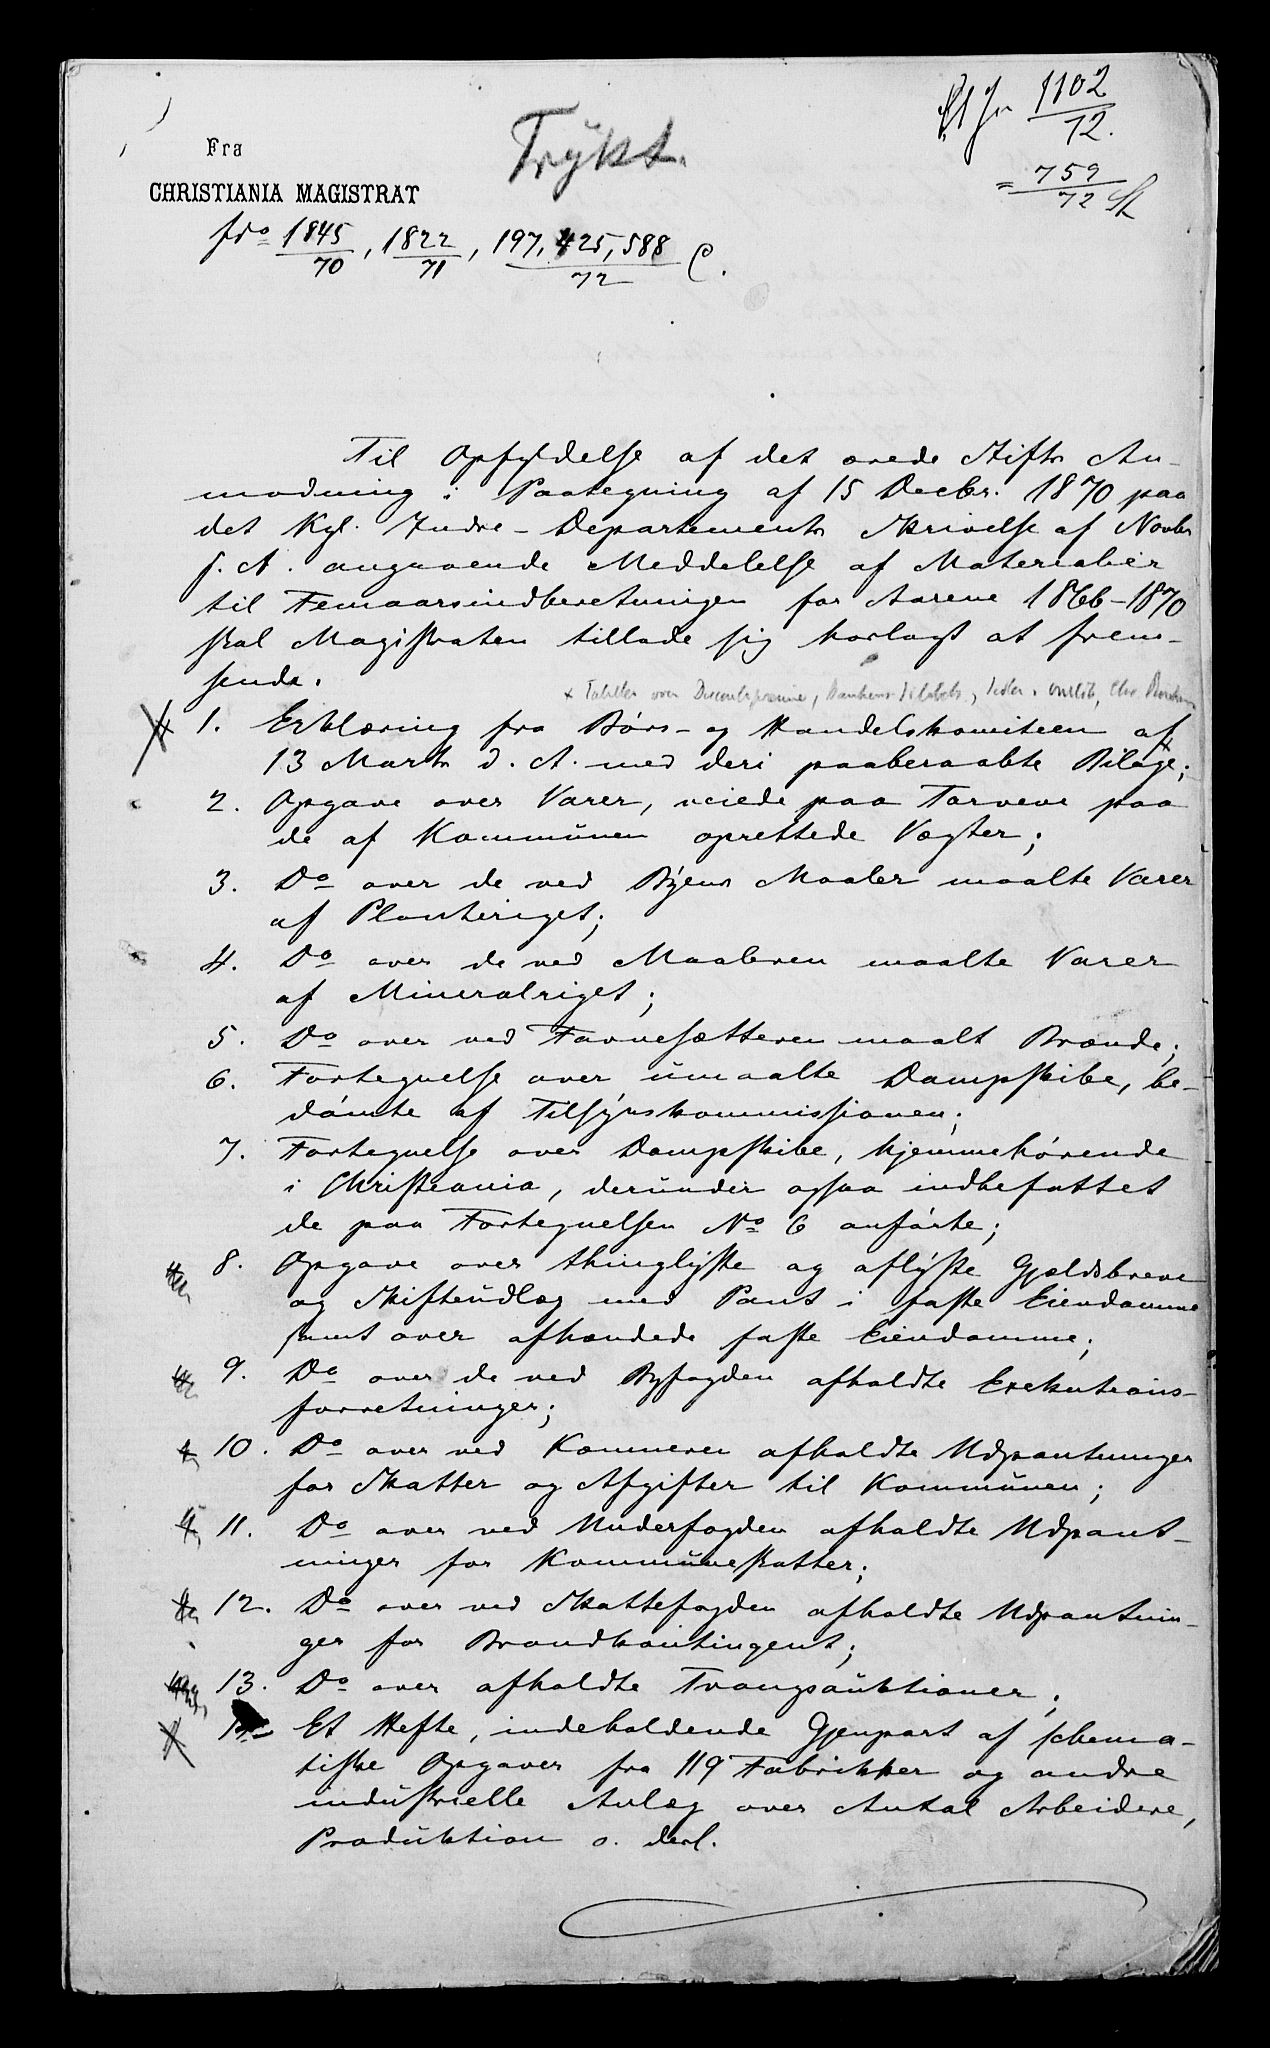 1102
12.
Trÿkt.
Fra
= 759
72
CHRISTIANIA MAGISTRAT
1845
70 , 1822
71 , 197, 425, 588
72 C.
Til Opfyldelse af det ærede Stifts An-
modning i Paategning af 15 Decbr. 1870 paa
det Kgl. Indre-Departements Skrivelse af Novbr
s. A. angaaende Meddelelse af Materialier
til Femaarsindberetningen for Aarene 1866-1870
skal Magistraten tillade sig herlagt at frem-
sende.
x Tabeller over
1. Erklæring fra Børs- og Handelskomiteen af
13 Marts d. A. med deri paaberaabte Bilage;
2. Opgave over Varer, veiede paa Torvene paa
de af Kommünen oprettede Vægter;
3. Do over de ved Byens Maaler maalte Varer
af Planteriget;
4. Do over de ved Maaleren maalte Varer
af Mineralriget;
5. Do over ved Favnesætteren maalt Brænde;
6. Fortegnelse over ümaalte Dampskibe, be-
dömte af Tilsÿnskommissionen;
7. Fortegnelse over Dampskibe, hjemmehörende
i Christiania, deründer ogsaa indbefattet
de paa Fortegnelsen No 6 anførte;
8. Opgave over thinglÿste og aflÿste Gjældsbreve
og Skifteüdlæg med Pant i faste Eiendomme
samt over afhændede faste Eiendomme;
9. Do over de ved Byfogden afholdte Exekutions-
forretninger;
10. Do over ved Kæmneren afholdte Udpantninger
for Skatter og Afgifter til Kommünen;
11. Do over ved Underfogden afholdte Udpant-
ninger for Kommüneskatter;
12. Do over ved Skattefogden afholdte Udpantnin-
ger for Brandkontingent;
13. Do over afholdte Tvangsaüktioner;
Et Hefte, indeholdende Gjenpart af schema-
tiske Opgaver fra 119 Fabrikker og andre
indüstrielle Anlæg over Antal Arbeidere,
Produktion o. desl.